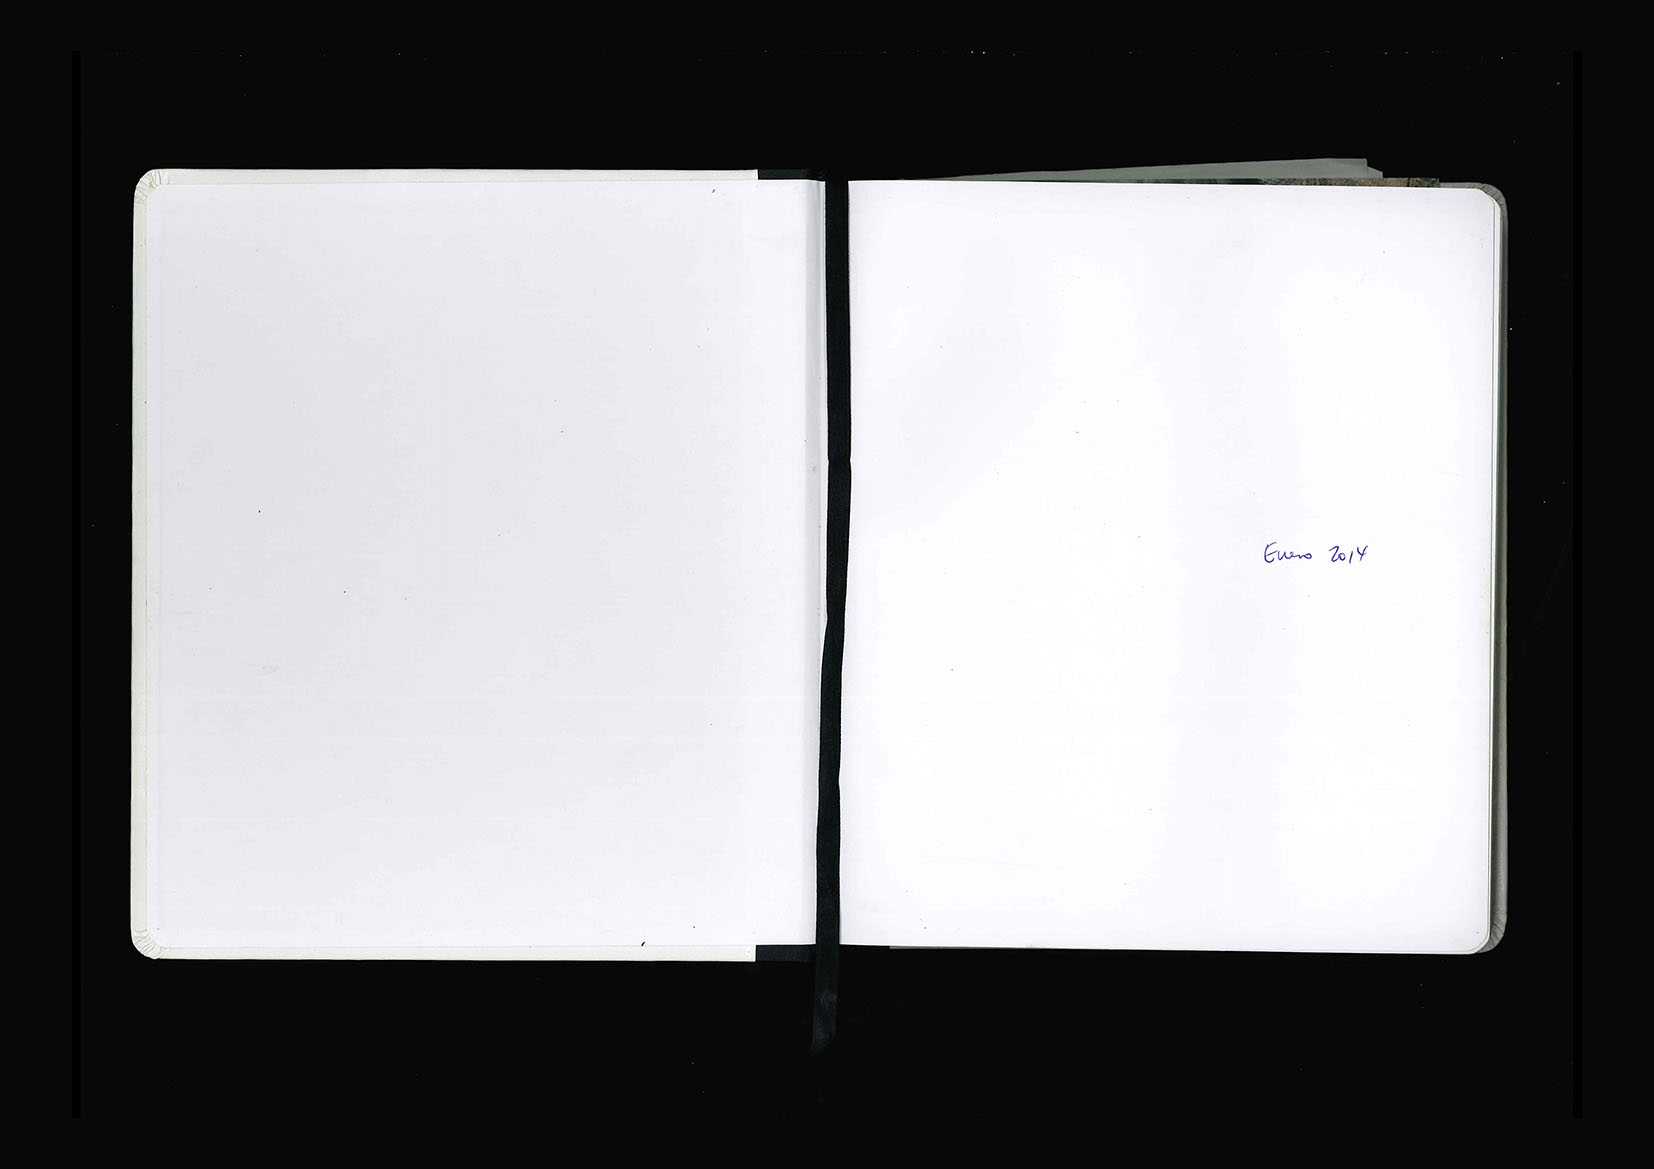 Enero 2014